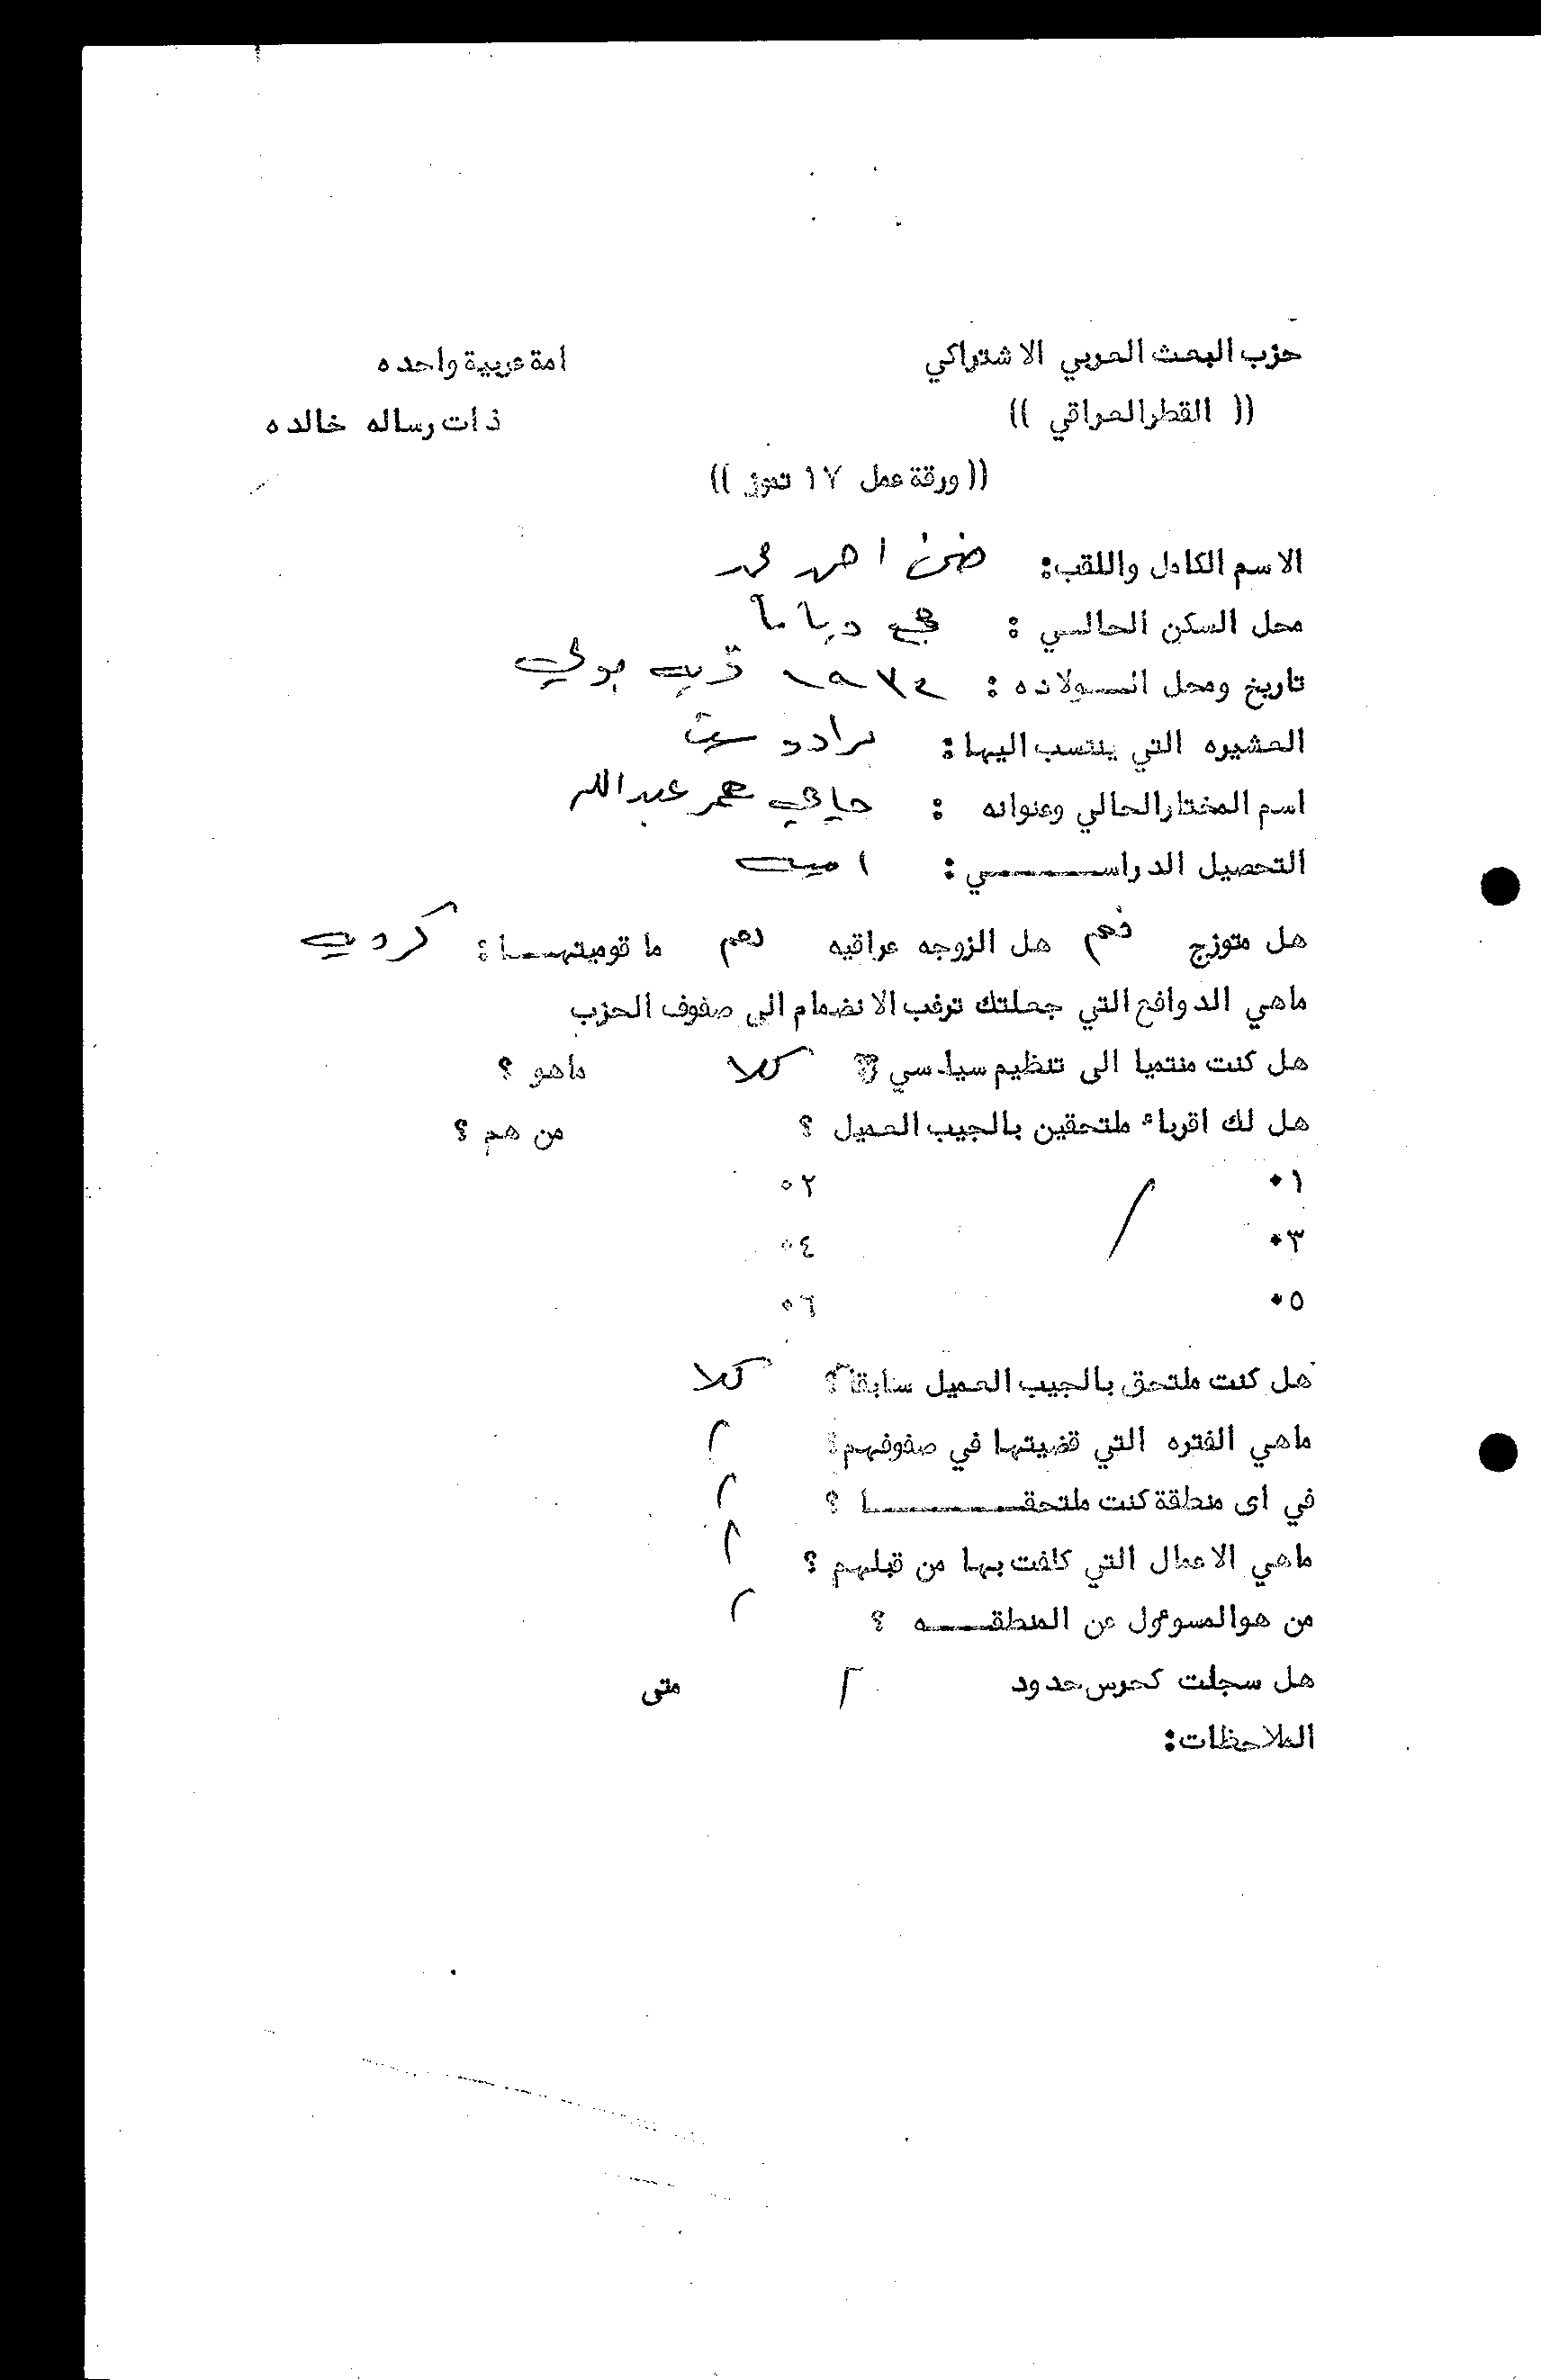 حزب البعث العربي الاشتراكي
امة عربية واحده
(( القطر العراقي ))
ذات رساله خالده
(( ورقة عمل ١٧ تموز ))
الاسم الكامل واللقب: احمد محمد
محل السكن الحالي : مجمع ديانا
تاريخ ومحل الولاده : ١٩٣٤ قريه
العشيره التي ينتسب اليها : برادوست
اسم المختار الحالي وعنوانه : حاجي عمر عبدالله
التحصيل الدراسي : اميه
هل متوزج نعم هل الزوجه عراقيه نعم ما قوميتها : كرديه
ماهي الدوافع التي جعلتك ترغب الانضمام الى صفوف الحزب
هل كنت منتميا الى تنظيم سياسي ؟ كلا ماهو ؟
هل لك اقرباء ملتحقين بالجيب العميل ؟ من هم ؟
١٠ ٢٠
٣٠ ٤٠
٥٠ ٦٠
هل كنت ملتحق بالجيب العميل سابقا ؟ كلا
ماهي الفتره التي قضيتها في صفوفهم ؟
في اى منطقة كنت ملتحقا ؟
ماهي الاعمال التي كلفت بها من قبلهم ؟
من هو المسوءول عن المنطقه ؟
هل سجلت كحرس حدود متى
الملاحظات :